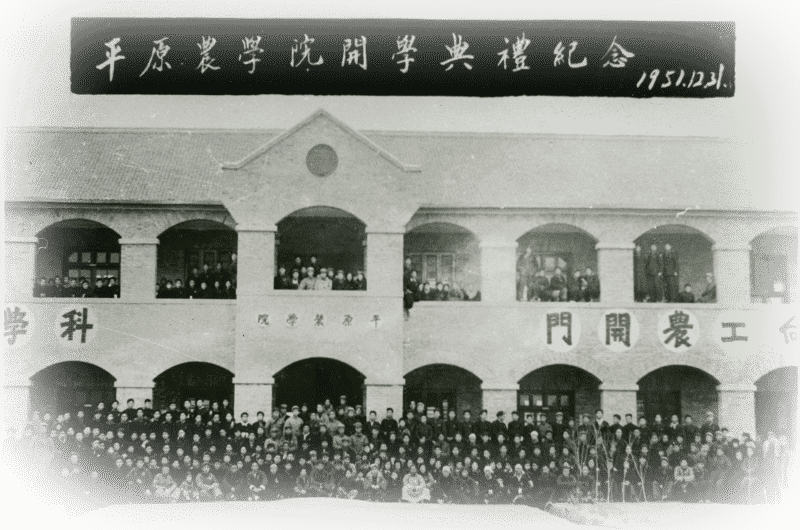 平原農學院開學典禮紀念
1951.12.31.
學科
院學農原平
門開農工向